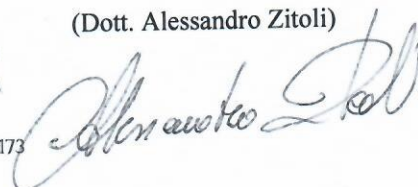 (Dott. Alessandro Zitoli)
173
Alessandro